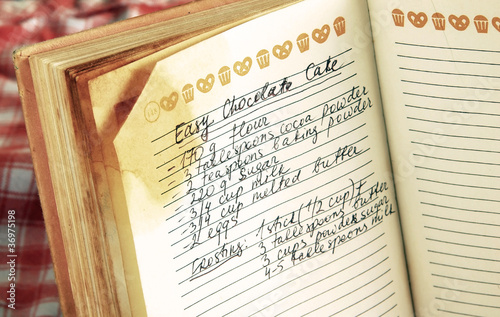 Easy Chocolate Cake
- 170 g flour
- 3 tablespoons cocoa powder
- 2 teaspoons baking powder
- 220 g sugar
- 3/4 cup milk
- 3/4 cup melted butter
- 2 eggs
Frosting: 1 stick (1/2 cup) +
3 tablespoons butter
3 cups powder sugar
4-5 tablespoons milk
Adobe Stock | #36975198